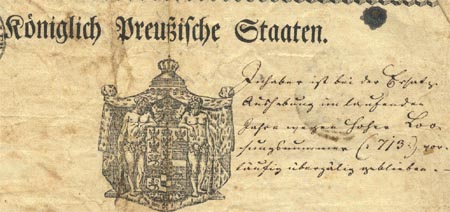 Königlich Preußische Staaten.
Inhaber ist bei der Ersatz-
Aushebung im laufenden
Jahre wegen hoher Loo-
sungsnummer (: 713 :) vor-
läufig überzälig geblieben. -